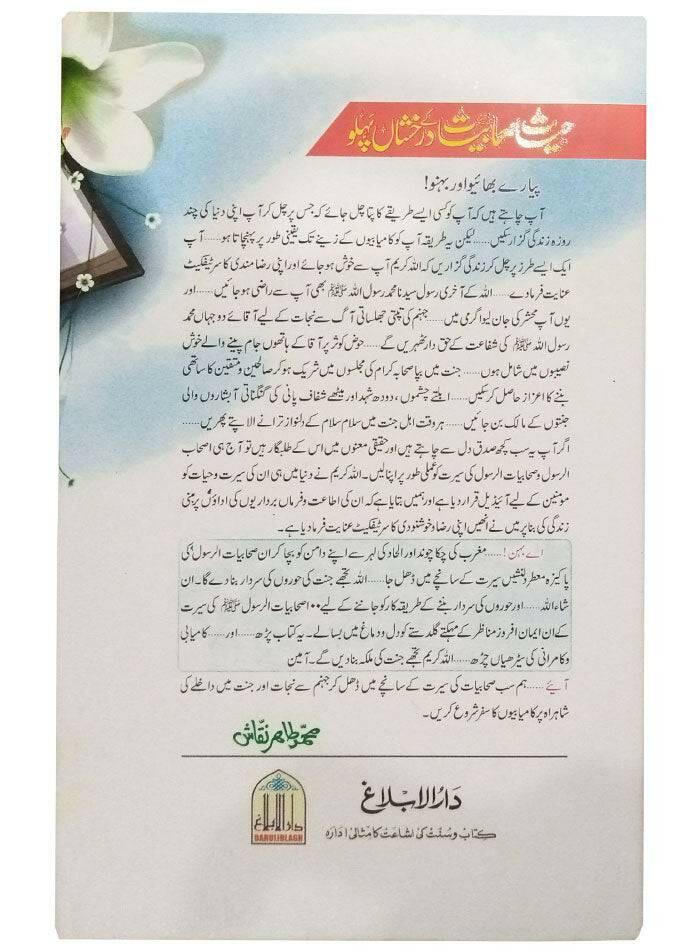 حیات صحابیات کے درخشاں پہلو
پیارے بھائیو اور بہنو!
آپ چاہتے ہیں کہ آپ کو کسی ایسے طریقے کا پتا چل جائے کہ جس پر چل کر آپ اپنی دنیا کی چند
روزہ زندگی گزار سکیں……لیکن یہ طریقہ آپ کو کامیابیوں کے زینے تک یقینی طور پر پہنچاتا ہو…… آپ
ایک ایسے طرز پر چل کر زندگی گزاریں کہ اللہ کریم آپ سے خوش ہو جائے اور اپنی رضا مندی کا سرٹیفکیٹ
عنایت فرما دے…… اللہ کے آخری رسول سیدنا محمد رسول اللہ ﷺ بھی آپ سے راضی ہو جائیں…… اور
یوں آپ محشر کی جان لیوا گرمی میں…… جہنم کی تپتی جھلساتی آگ سے نجات کے لیے آقائے دو جہاں محمد
رسول اللہ ﷺ کی شفاعت کے حق دار ٹھہریں گے…… حوض کوثر پر آقا کے ہاتھوں جام پینے والے خوش
نصیبوں میں شامل ہوں…… جنت میں بپا صحابہ کرام کی مجلسوں میں شریک ہو کر صالحین و متقین کا ساتھی
بننے کا اعزاز حاصل کر سکیں…… ابلتے چشموں، دودھ شہد اور میٹھے شفاف پانی کی گنگناتی آبشاروں والی
جنتوں کے مالک بن جائیں…… ہر وقت اہل جنت میں سلام سلام کے دلنواز ترانے الاپتے پھریں……
اگر آپ یہ سب کچھ صدق دل سے چاہتے ہیں اور حقیقی معنوں میں اس کے طلبگار ہیں تو آج ہی اصحاب
الرسول و صحابیات الرسول کی سیرت کو عملی طور پر اپنا لیں۔ اللہ کریم نے دنیا میں ہی ان کی سیرت و حیات کو
مومنین کے لیے آئیڈیل قرار دیا ہے اور ہمیں بتایا ہے کہ ان کی اطاعت و فرماں برداریوں کی اداؤں پر مبنی
زندگی کی بنا پر میں نے انھیں اپنی رضا و خوشنودی کا سرٹیفکیٹ عنایت فرما دیا ہے۔
اے بہن!…… مغرب کی چکا چوند اور الحاد کی لہر سے اپنے دامن کو بچا کر ان صحابیات الرسول کی
پاکیزہ معطر دلنشیں سیرت کے سانچے میں ڈھل جا…… اللہ تجھے جنت کی حوروں کی سردار بنا دے گا۔ ان
شاء اللہ…… اور حوروں کی سردار بننے کے طریقہ کار کو جاننے کے لیے ۱۰۰ صحابیات الرسول ﷺ کی سیرت
کے ان ایمان افروز مناظر کے مہکتے گلدستے کو دل و دماغ میں بسا لے۔ یہ کتاب پڑھ…… اور…… کامیابی
و کامرانی کی سیڑھیاں چڑھ…… اللہ کریم تجھے جنت کی ملکہ بنا دیں گے۔ آمین
آیئے…… ہم سب صحابیات کی سیرت کے سانچے میں ڈھل کر جہنم سے نجات اور جنت میں داخلے کی
شاہراہ پر کامیابیوں کا سفر شروع کریں۔
محمد طاہر نقاش
دارالابلاغ
کتاب و سنت کی اشاعت کا مثالی ادارہ
دارالابلاغ
DARULIBLAGH